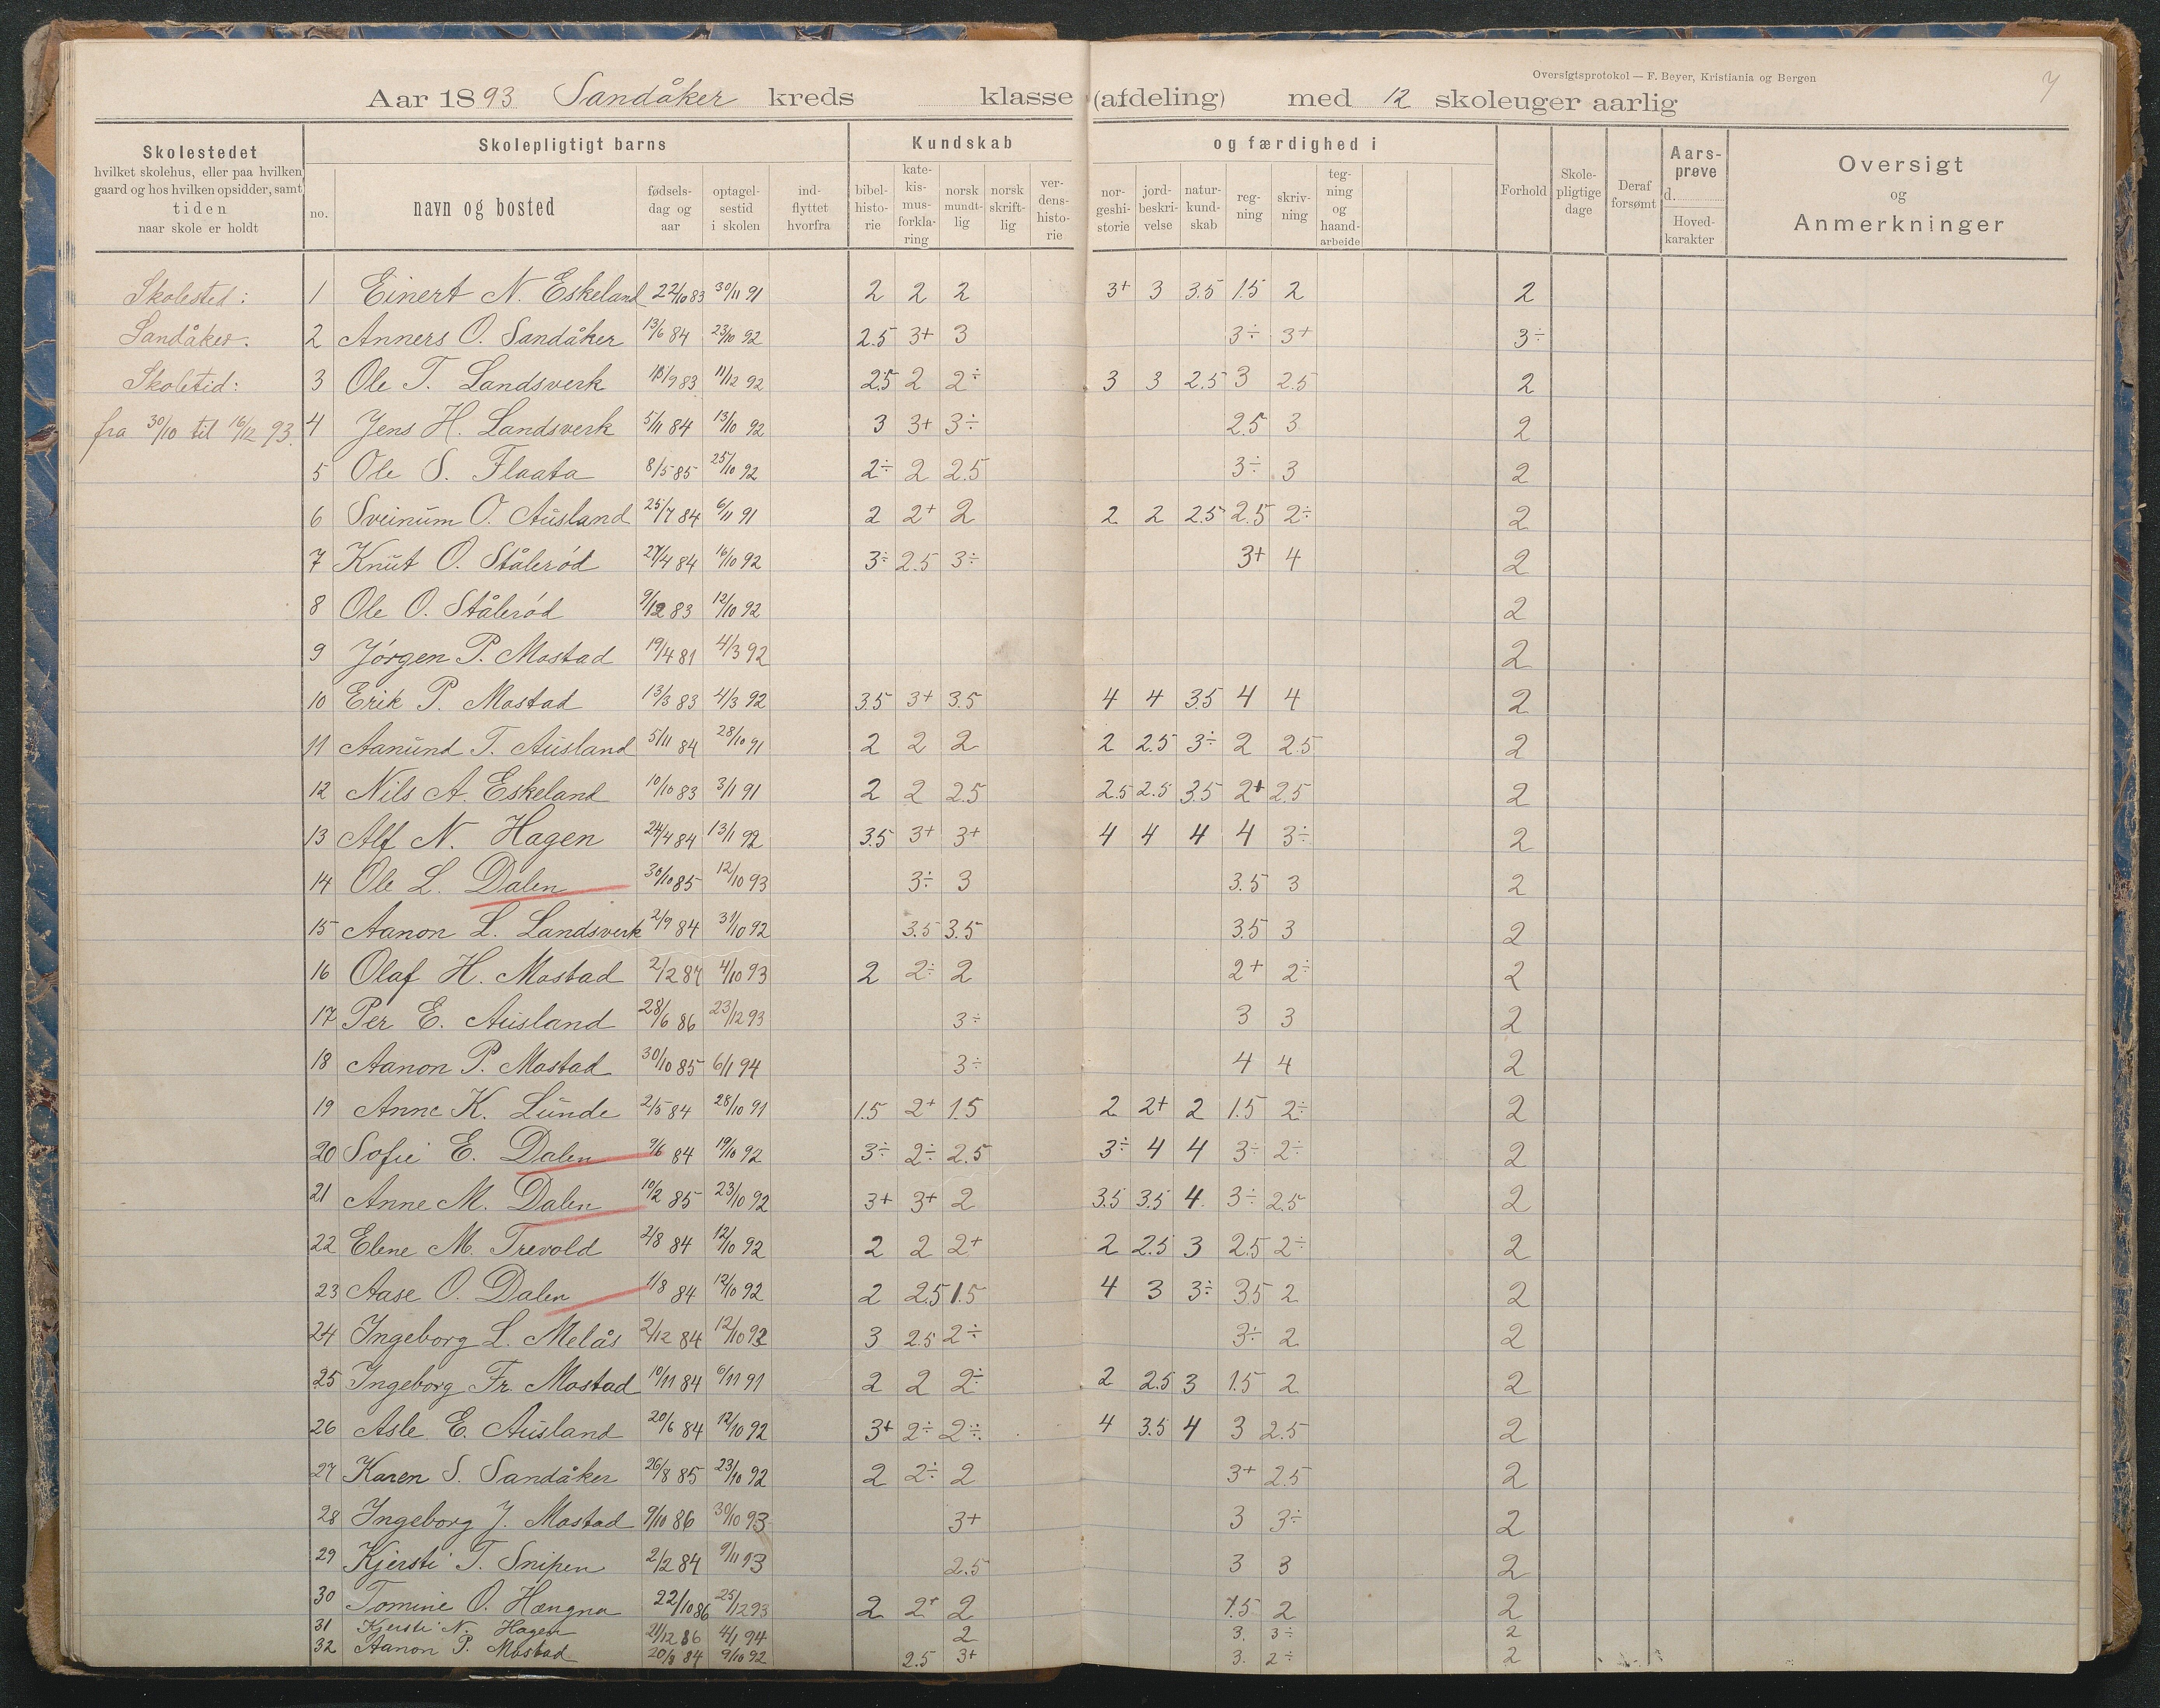 Oversigtsprotokol — F. Beyer, Kristiania og Bergen
7
Aar 1893 Sandåker kreds klasse (afdeling) med 12 skoleuger aarlig
Skolestedet
hvilket skolehus, eller paa hvilken
gaard og hos hvilken opsidder, samt
tiden
naar skole er holdt
Skolepligtigt barns
no. navn og bosted
fødsels-
dag og
aar
optagel-
sestid
i skolen
ind-
flyttet
hvorfra
Kundskab
bibel-
histo-
rie
kate-
kis-
mus-
forkla-
ring
norsk
mundt-
lig
norsk
skrift-
lig
ver-
dens-
histo-
rie
og færdighed i
nor-
geshi-
storie
jord-
beskri-
velse
natur-
kund-
skab
reg-
ning
skriv-
ning
teg-
ning
og
haand-
arbeide
Forhold
Skole-
pligtige
dage
Deraf
forsømt
Aars-
prøve
d.
Hoved-
karakter
Oversigt
og
Anmerkninger
Skolested:
Sandåker.
Skoletid:
fra 30/10 til 16/12 93.
1 Einert N. Eskeland 22/10 83 30/11 91 2 2 2 3+ 3 3.5 1.5 2 2
2 Anners O. Sandåker 13/6 84 23/10 92 2.5 3+ 3 3÷ 3+ 3÷
3 Ole T. Landsverk 18/9 83 11/12 92 2.5 2 2÷ 3 3 2.5 3 2.5 2
4 Jens H. Landsverk 5/11 84 13/10 92 3 3+ 3÷ 2.5 3 2
5 Ole S. Flaata 8/5 85 25/10 92 2÷ 2 2.5 3÷ 3 2
6 Sveinum O. Ausland 25/7 84 6/11 91 2 2+ 2 2 2 2.5 2.5 2÷ 2
7 Knut O. Stålerød 27/4 84 16/10 92 3÷ 2.5 3÷ 3+ 4 2
8 Ole O. Stålerød 9/12 83 12/10 92 2
9 Jørgen P. Mostad 19/4 81 4/3 92 2
10 Erik P. Mostad 13/3 83 4/3 92 3.5 3+ 3.5 4 4 3.5 4 4 2
11 Aanund T. Ausland 5/11 84 28/10 91 2 2 2 2 2.5 3÷ 2 2.5 2
12 Nils A. Eskeland 10/10 83 3/1 91 2 2 2.5 2.5 2.5 3.5 2+ 2.5 2
13 Alf N. Hagen 24/4 84 13/1 92 3.5 3+ 3+ 4 4 4 4 3÷ 2
14 Ole L. Dalen 30/10 85 12/10 93 3÷ 3 3.5 3 2
15 Aanon L. Landsverk 2/9 84 31/10 92 3.5 3.5 3.5 3 2
16 Olaf H. Mostad 2/2 84 4/10 93 2 2÷ 2 2+ 2÷ 2
17 Per E. Ausland 28/6 86 23/12 93 3÷ 3 3 2
18 Aanon P. Mostad 30/10 85 6/1 94 3÷ 4 4 2
19 Anne K. Lunde 2/5 84 28/10 91 1.5 2+ 1.5 2 2+ 2 1.5 2÷ 2
20 Sofie E. Dalen 9/6 84 19/10 92 3÷ 2÷ 2.5 3÷ 4 4 3÷ 2÷ 2
21 Anne M. Dalen 10/2 85 23/10 92 3+ 3+ 2 3.5 3.5 4 3÷ 2.5 2
22 Elene M. Trevold 2/8 84 12/10 92 2 2 2+ 2 2.5 3 2.5 2÷ 2
23 Aase O. Dalen 1/8 84 12/10 92 2 2.5 1.5 4 3 3÷ 3.5 2 2
24 Ingeborg L. Melås 2/12 84 12/10 92 3 2.5 2÷ 3÷ 2 2
25 Ingeborg Fr. Mostad 10/11 84 6/11 91 2 2 2÷ 2 2.5 3 1.5 2 2
26 Asle E. Ausland 20/6 84 12/10 92 3+ 2÷ 2÷ 4 3.5 4 3 2.5 2
27 Karen S. Sandåker 26/8 85 23/10 92 2 2÷ 2 3+ 2.5 2
28 Ingeborg J. Mostad 9/10 86 30/10 93 3+ 3 3÷ 2
29 Kjersti T. Snipen 2/2 84 9/11 93 2.5 3 3 2
30 Tomine O. Hængna 22/10 86 25/12 93 2 2+ 2 1.5 2 2
31 Kjersti N. Hagen 21/12 86 4/1 94 2 3. 3÷ 2
32 Aanon P. Mostad 20/8 84 9/10 92 2.5 3+ 3. 2÷ 2